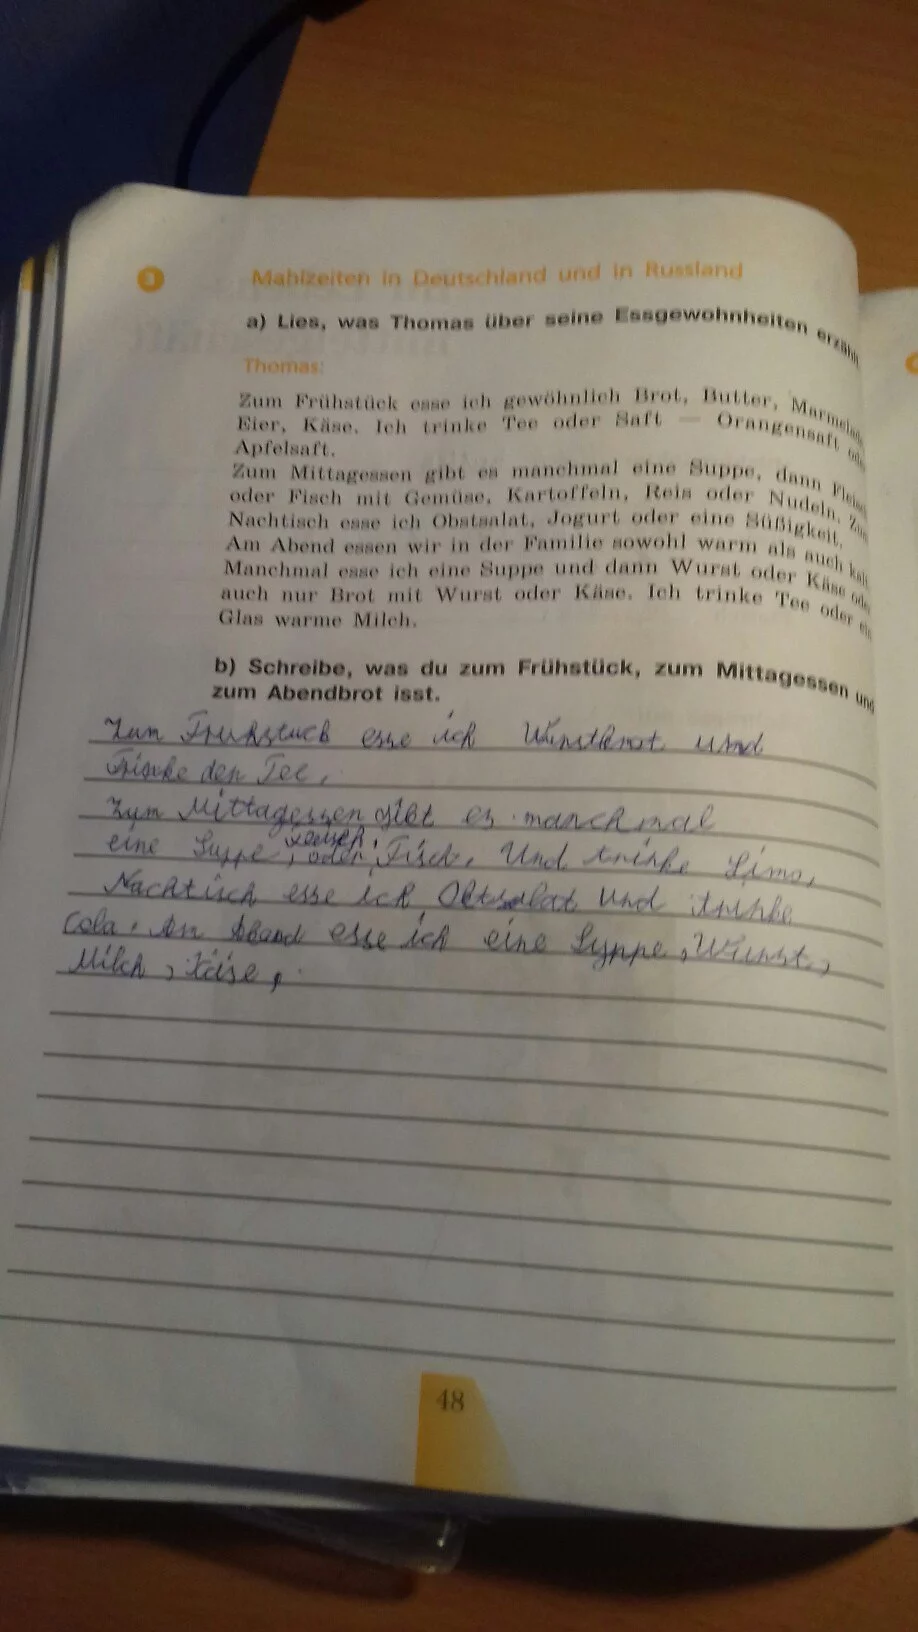 3
Mahlzeiten in Deutschland und in Russland
a) Lies, was Thomas über seine Essgewohnheiten erzählt
Thomas:
Zum Frühstück esse ich gewöhnlich Brot, Butter, Marmelade
Eier, Käse. Ich trinke Tee oder Saft — Orangensaft oder
Apfelsaft.
Zum Mittagessen gibt es manchmal eine Suppe, dann Fleisch
oder Fisch mit Gemüse, Kartoffeln, Reis oder Nudeln. Zum
Nachtisch esse ich Obstsalat, Jogurt oder eine Süßigkeit.
Am Abend essen wir in der Familie sowohl warm als auch kalt.
Manchmal esse ich eine Suppe und dann Wurst oder Käse oder
auch nur Brot mit Wurst oder Käse. Ich trinke Tee oder ein
Glas warme Milch.
b) Schreibe, was du zum Frühstück, zum Mittagessen und
zum Abendbrot isst.
Zum Fruhstuck esse ich Wurstbrot und
Trinke den Tee.
Zum Mittagessen gibt es manchmal
eine Suppe, oder Fisch. Und trinke Limo,
Nachtisch esse ich Obtsalat und trinke
Cola. Am Abend esse ich eine Suppe, Wurst,
Milch, Käse,
48